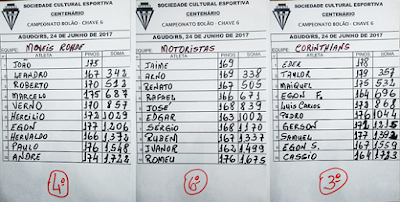 SOCIEDADE CULTURAL ESPORTIVA
CENTENÁRIO
CAMPEONATO BOLÃO - CHAVE 6
AGUDO/RS, 24 DE JUNHO DE 2017
EQUIPE: MÓVEIS ROHDE
ATLETA PINOS SOMA
1 JOÃO 175
2 LEANDRO 167 342
3 ROBERTO 170 512
4 MARCELO 175 687
5 VERNO 170 857
6 HERCILIO 172 1029
7 EGON 177 1206
8 HERVALDO 166 1372
9 PAULO 176 1.548
10 ANDRE 174 1.722
4º
SOCIEDADE CULTURAL ESPORTIVA
CENTENÁRIO
CAMPEONATO BOLÃO - CHAVE 6
AGUDO/RS, 24 DE JUNHO DE 2017
EQUIPE: MOTORISTAS
ATLETA PINOS SOMA
1 JAIME 169
2 ARNO 169 338
3 RENATO 167 505
4 RAFAEL 166 671
5 JOSÉ 168 839
6 EDGAR 163 1002
7 SERGIO 168 1170
8 RUBEM 167 1337
9 IVANOR 162 1.499
10 ROMEU 176 1.675
6º
SOCIEDADE CULTURAL ESPORTIVA
CENTENÁRIO
CAMPEONATO BOLÃO - CHAVE 6
AGUDO/RS, 24 DE JUNHO DE 2017
EQUIPE: CORINTHIANS
ATLETA PINOS SOMA
1 EDER 178
2 TAYLOR 179 357
3 MAIQUEL 175 532
4 EGON F. 164 696
5 LUIS CARLOS 172 868
6 PEDRO 176 1044
7 GERSON 171 1215
8 SAMUEL 177 1392
9 EGON S. 167 1559
10 CASSIO 164 1723
3º